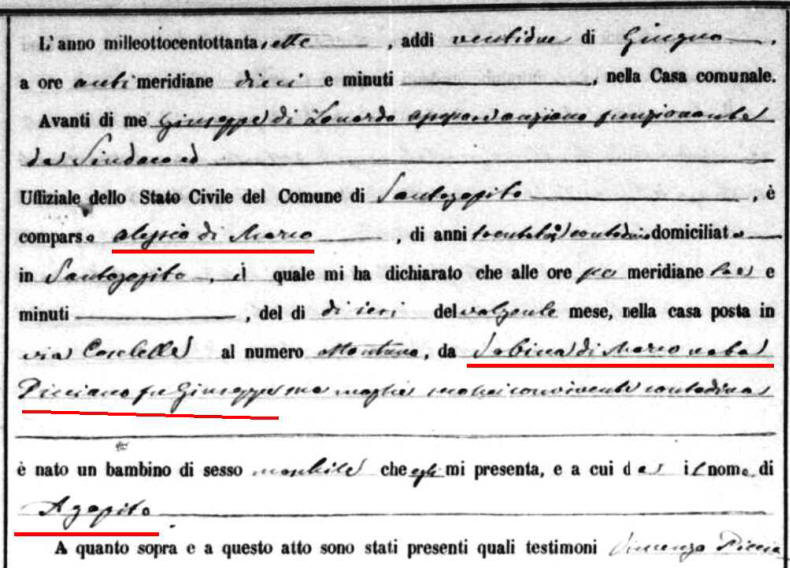 L'anno milleottocentottantasette, addi ventidue di Giugno,
a ore anti meridiane dieci e minuti, nella Casa comunale.
Avanti di me Giuseppe di Lonardo anziano funzionante
da Sindaco ed
Uffiziale dello Stato Civile del Comune di Santagapito, è
comparso Alessio di Marco, di anni contadino domiciliato
in Santagapito, il quale mi ha dichiarato che alle ore po meridiane tre e
minuti, del di di ieri del volgente mese, nella casa posta in
via al numero ottantuno, da Sabina di Marco nata
Picciano fu Giuseppe sua moglie convivente contadina
è nato un bambino di sesso maschile che egli mi presenta, e a cui da il nome di
Agapito
A quanto sopra e a questo atto sono stati presenti quali testimoni Vincenzo Piccia